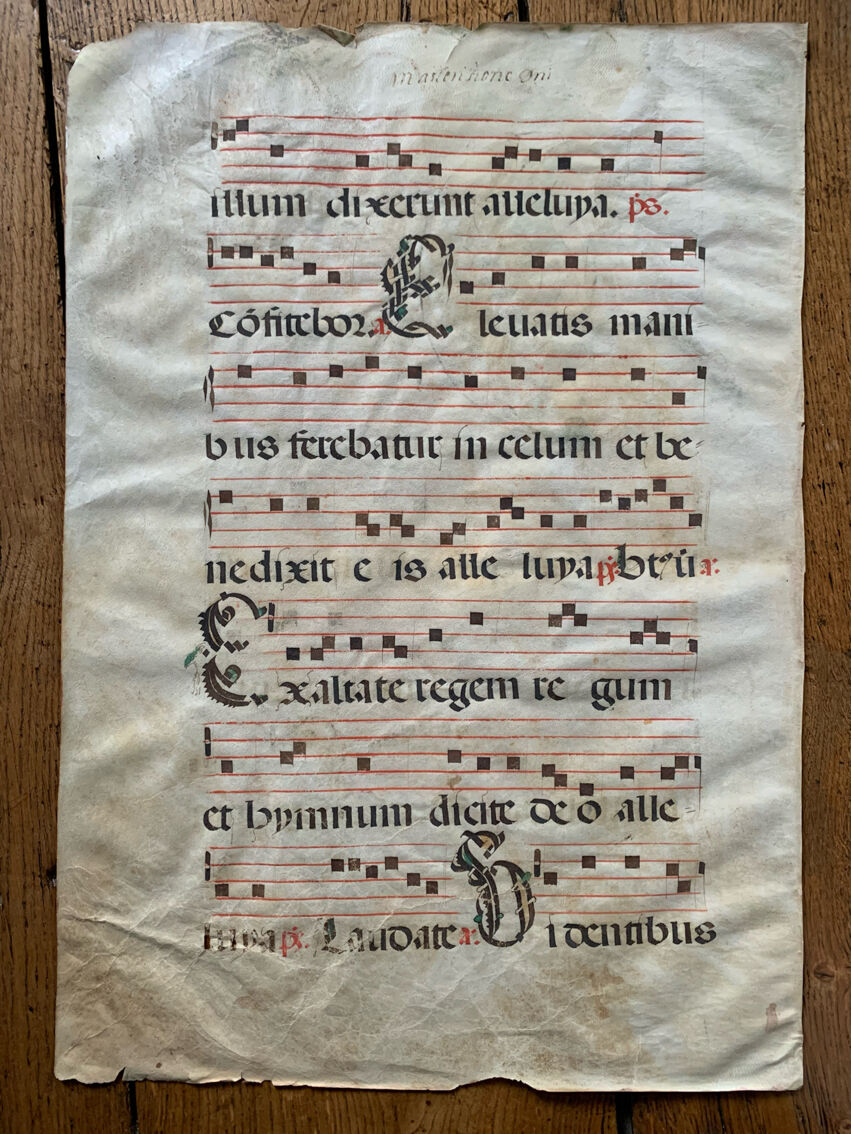 in ascensione Dni
illum dixerunt alleluya. ps.
Cōfitebor. a. Eleuatis mani
bus ferebatur in celum et be-
nedixit eis alleluya ps. a.
Exaltate regem regum
et hymnum dicite deo alle-
luya ps. Laudate a. Videntibus